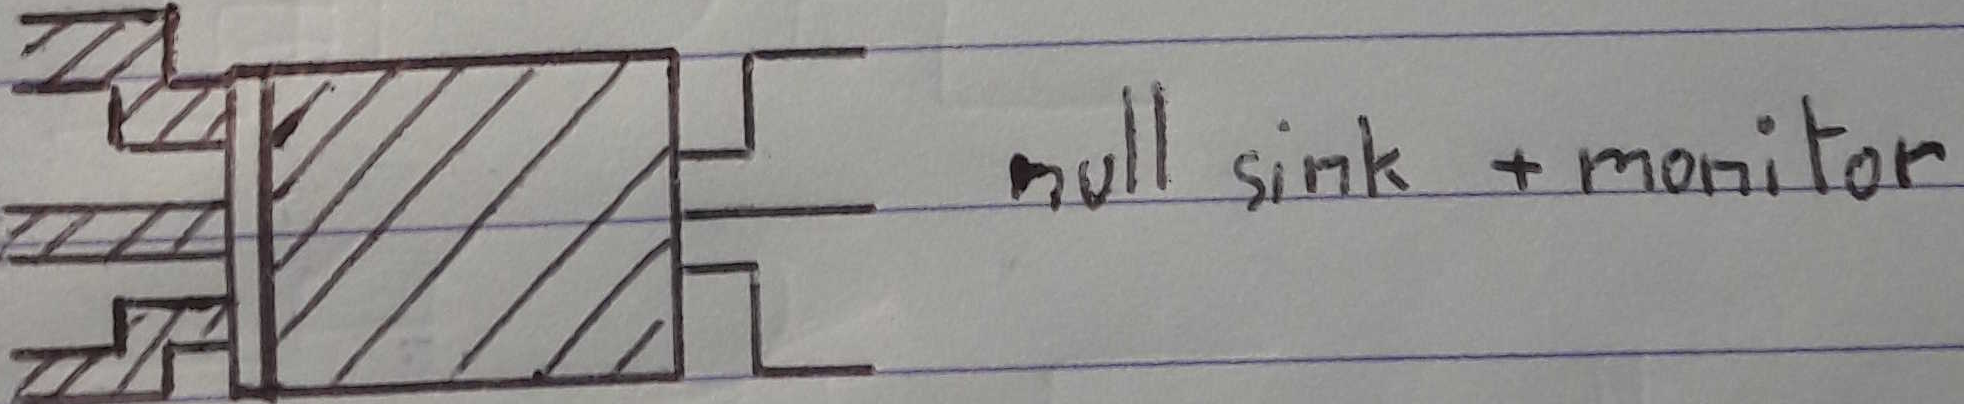 null sink + monitor